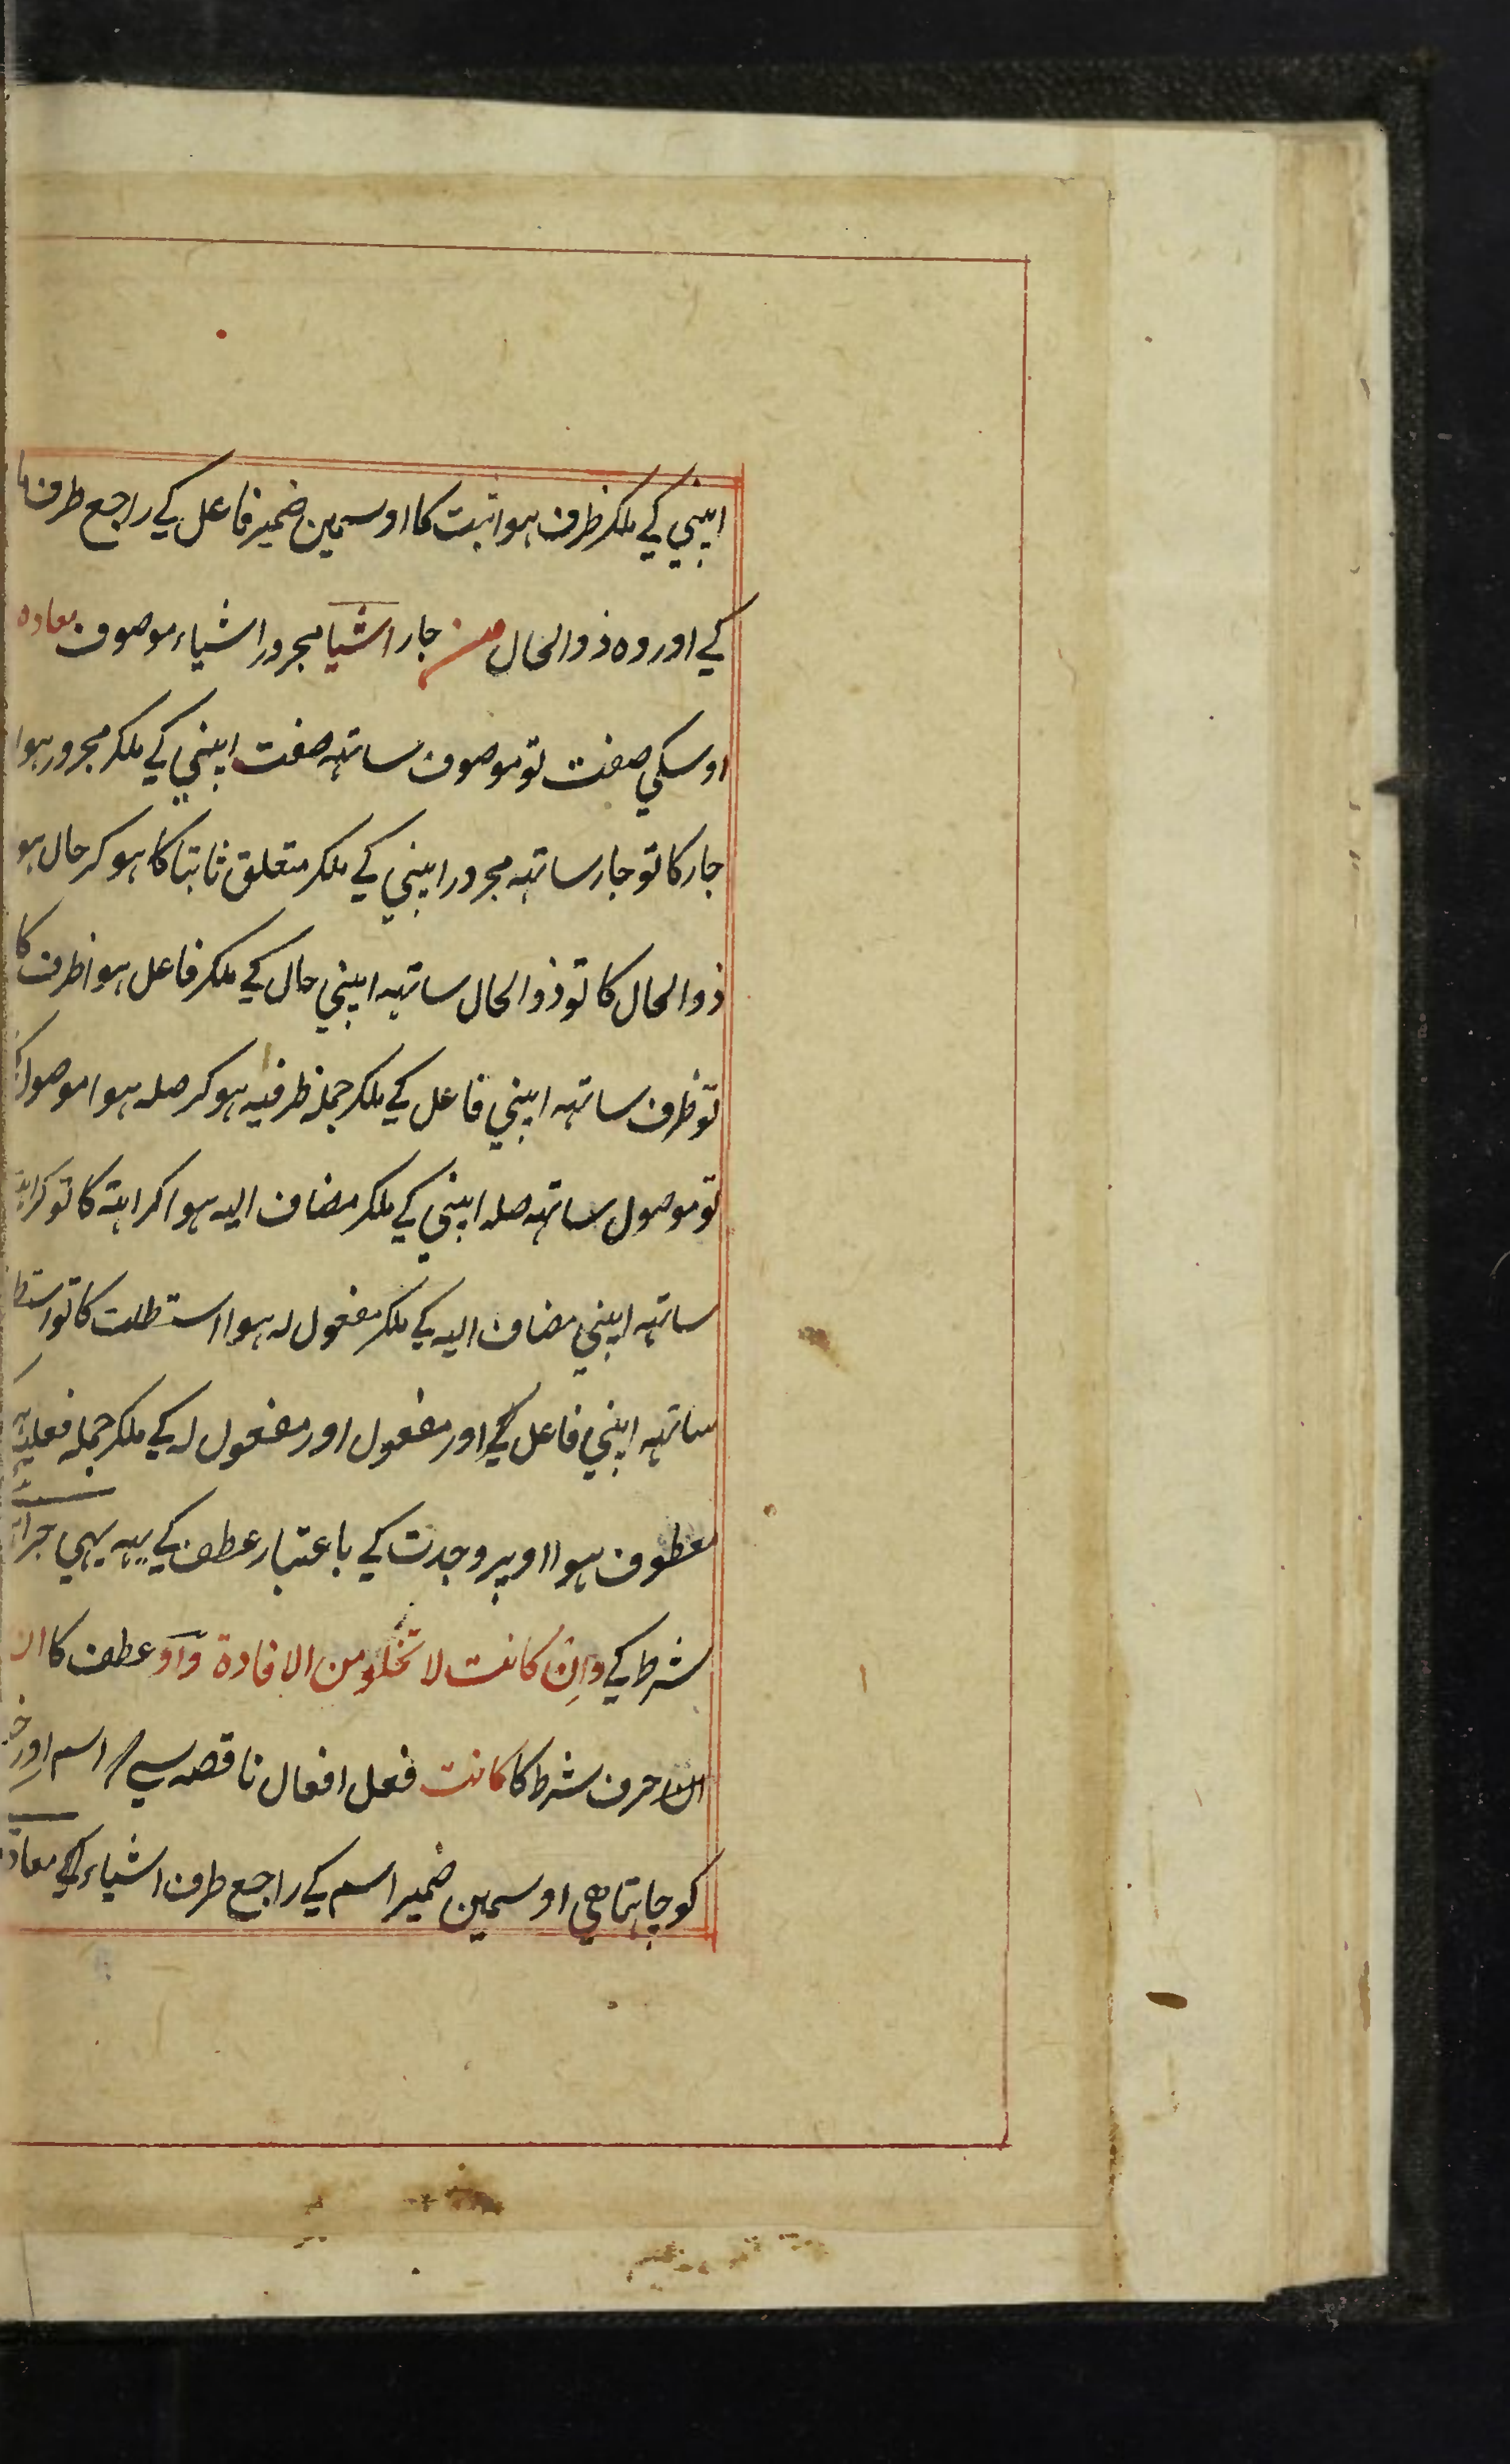 اپنی کے ملکر ظرف ہوا ثبت کا اوسمین ضمیر فاعل کے راجع طرف ما
کے اور وہ ذوالحال من جار اشیا مجرور اشیاء موصوف معادہ
اوسکی صفت تو موصوف ساتہہ صفت اپنی کے ملکر مجرور ہوا
جار کا تو جار ساتہہ مجرور اپنی کے ملکر متعلق ثابتا کا ہوکر حال ہو
ذوالحال کا تو ذوالحال ساتہہ اپنی حال کے ملکر فاعل ہوا ظرف کا
تو ظرف ساتہہ اپنی فاعل کے ملکر جملہ ظرفیہ ہوکر صلہ ہوا موصول
تو موصول ساتہہ صلہ اپنی کے ملکر مضاف الیہ ہوا کراہتہ کا تو
ساتہہ اپنی مضاف الیہ کے ملکر مفعول لہ ہوا استطلت کا تو
ساتہہ اپنی فاعل کے اور مفعول اور مفعول لہ کے ملکر جملہ فعلیہ
معطوف ہوا اوپر وجدت کے باعتبار عطف کے یہہ بہی جزا
شرط کے وان کانت لا تخلو من الافادۃ واو عطف کا ان
ان حرف شرط کا کانت فعل افعال ناقصہ سے اسم اور
کو چاہتا ھی اوسمین ضمیر اسم کے راجع طرف اشیاء کے معادہ